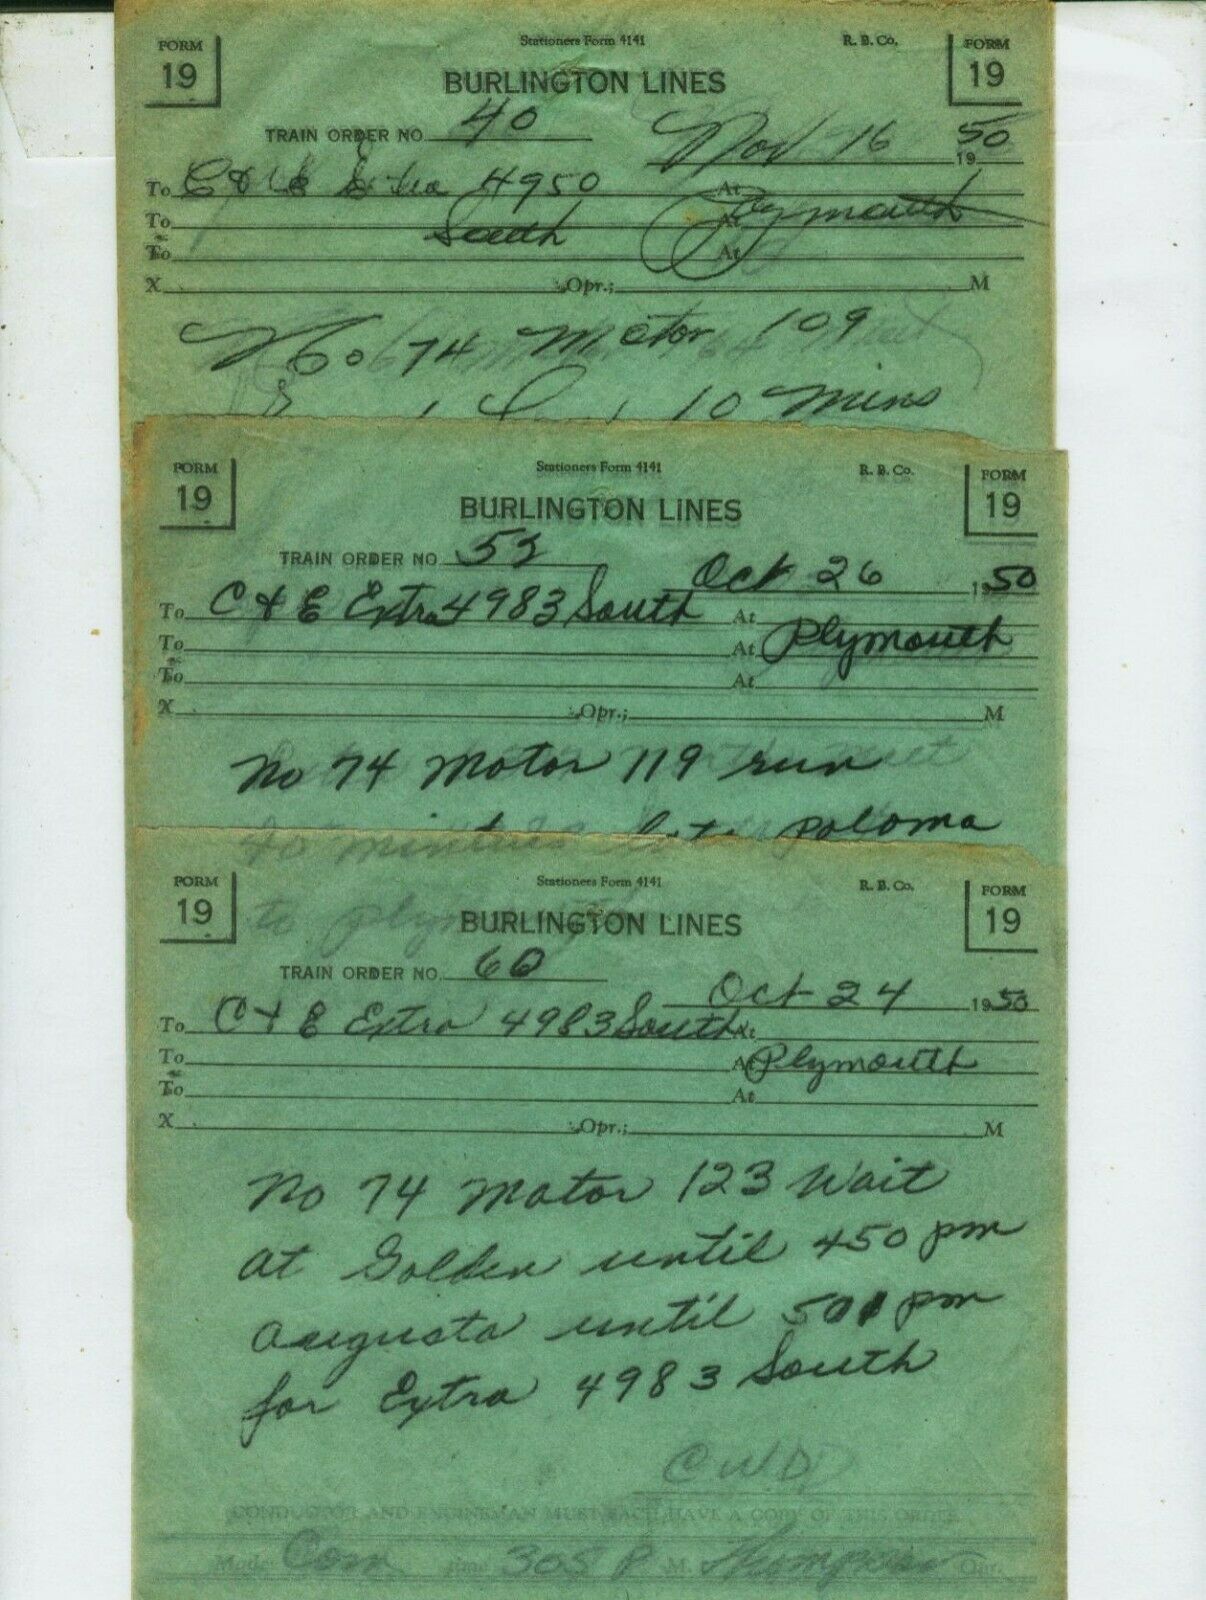 FORM 19 Stationers Form 4141 R. B. Co. FORM 19
BURLINGTON LINES
TRAIN ORDER NO. 40 Nov 16 1950
To C & E Extra 4950 At
To South At Plymouth
To At
X Opr.; M
No 74 Motor 109
10 mins
FORM 19 Stationers Form 4141 R. B. Co. FORM 19
BURLINGTON LINES
TRAIN ORDER NO. 55 Oct 26 1950
To C & E Extra 4983 South At
To At Plymouth
To At
X Opr.; M
No 74 Motor 119 run
40 minutes late Paloma
to Plymouth
FORM 19 Stationers Form 4141 R. B. Co. FORM 19
BURLINGTON LINES
TRAIN ORDER NO. 60 Oct 24 1950
To C & E Extra 4983 South At
To At Plymouth
To At
X Opr.; M
No 74 Motor 123 Wait
at Golden until 450 pm
Augusta until 501 pm
for Extra 4983 South
CWD
CONDUCTOR AND ENGINEMAN MUST EACH HAVE A COPY OF THIS ORDER
Made Com time 305 P M. Thompson Opr.